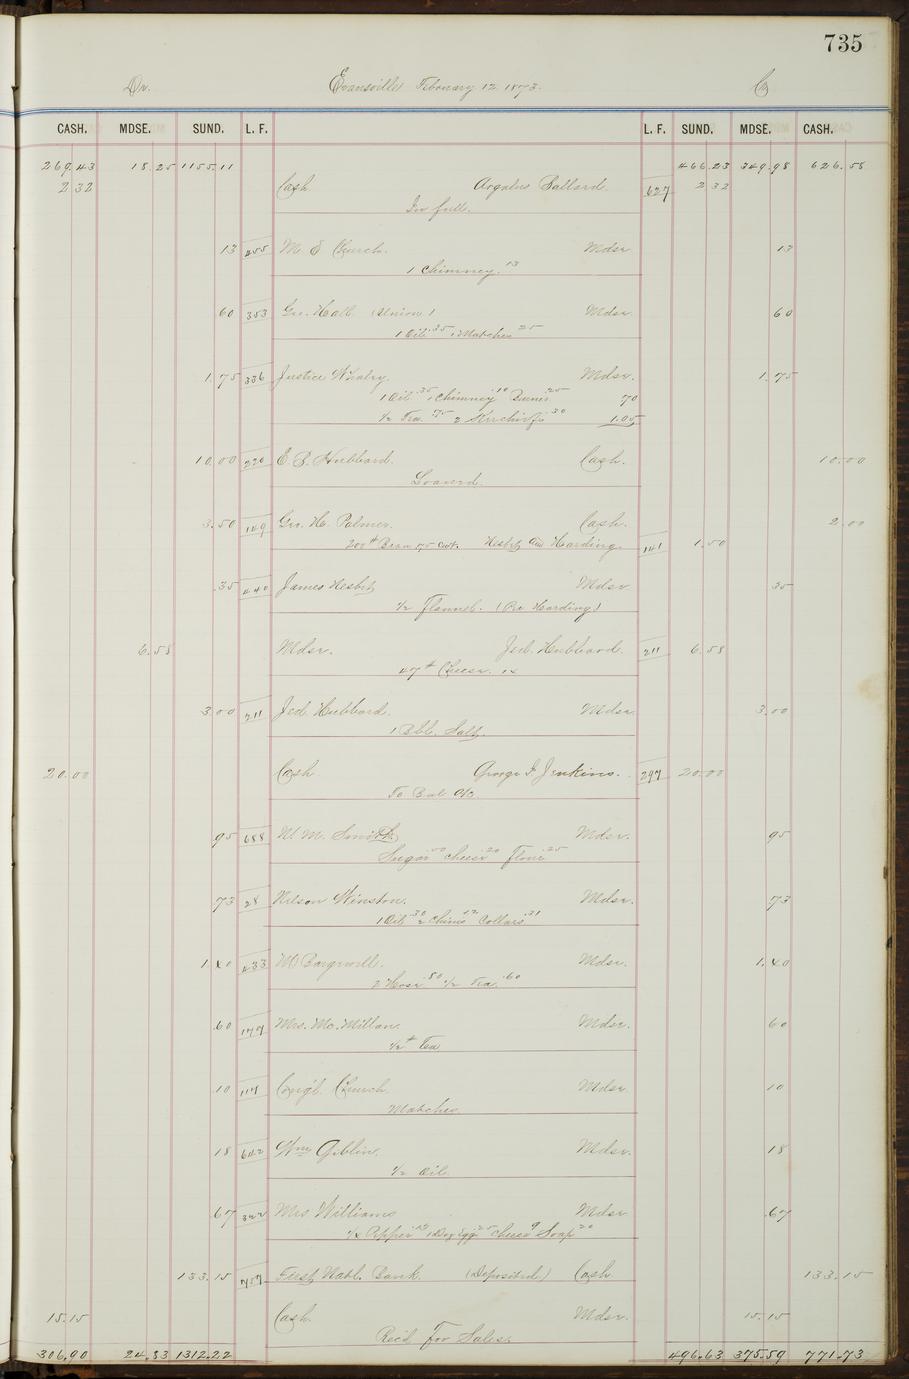 735
Dr. Evansville February 12, 1873. Cr
CASH. MDSE. SUND. L. F. L. F. SUND. MDSE. CASH.
269.43 18.25 1155.11 466.23 349.98 626.58
2 32 Cash Argalus Ballard. 627 2 32
In full.
13 455 M. E Church. Mdse 13
1 Chimney. 13
60 353 Geo. Hall (Union) Mdse. 60
1 Oil .35 Matches 25
1.75 336 Justice Whalry. Mdse. 1.75
1 Oil .35 1 Chimney .10 Burner .25 70
1/2 Tea .75 2 Kerchiefs .30 1.05
10.00 220 E. B. Hubbard. Cash. 10.00
Loaned.
3.50 149 Geo. H. Palmer. Cash. 2.00
200# Bran .75 cwt. Nesbit Harding. 141 1.50
.35 440 James Nesbit Mdse 35
1/2 Flannel. (Per Harding)
6.58 Mdse. Jed. Hubbard. 211 6.58
47# Cheese. 14
3.00 211 Jed. Hubbard. Mdse 3.00
1 Bbl. Salt.
20.00 Cash George F Jenkins. 297 20.00
To Bal. a/c
95 688 M. Smith Mdse. 95
Sugar .50 Cheese .20 Flour .25
73 28 Nelson Winston. Mdse. 73
1 Oil .30 2 Chims .12 Collars .31
1.40 433 Bargwell. Mdse. 1.40
2 Hose .80 1/2 Tea .60
.60 177 Mrs. Mc.Millan. Mdse. 60
1/2# Tea
.10 117 Cong'l. Church. Mdse. 10
Matches
18 642 Wm Giblin. Mdse. 18
1/2 Oil
.67 322 Mrs Williams Mdse .67
1/4 Pepper 1 Doz Egg .25 Cheese 9 Soap 20
133.15 757 First Natl. Bank. (Deposited) Cash 133.15
15.15 Cash. Mdse. 15.15
Rec'd For Sales.
306.90 24.83 1312.22 496.63 375.59 771.73